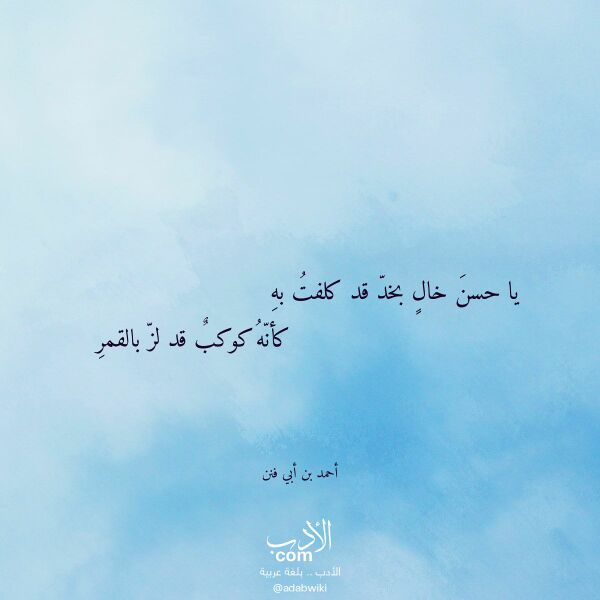 يا حسنَ خالٍ بخدّ قد كلفتُ بهِ
كأنّهُ كوكبٌ قد لزّ بالقمرِ
أحمد بن أبي فنن
الأدب
com
الأدب .. بلغة عربية
@adabwiki